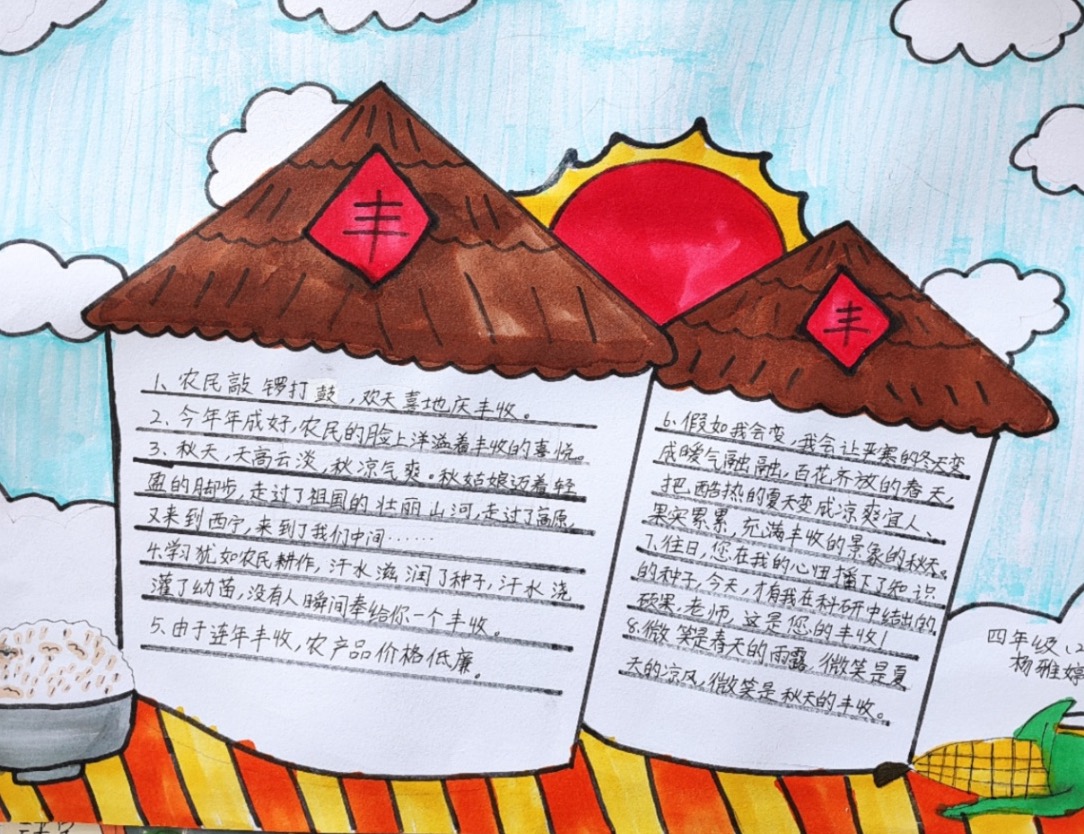 丰
丰
1、农民敲锣打鼓，欢天喜地庆丰收。
2、今年年成好，农民的脸上洋溢着丰收的喜悦。
3、秋天，天高云淡，秋凉气爽。秋姑娘迈着轻
盈的脚步，走过了祖国的壮丽山河，走过了高原，
又来到西宁，来到了我们中间……
4、学习犹如农民耕作，汗水滋润了种子，汗水浇
灌了幼苗，没有人瞬间奉给你一个丰收。
5、由于连年丰收，农产品价格低廉。
6、假如我会变，我会让严寒的冬天变
成暖气融融，百花齐放的春天，
把酷热的夏天变成凉爽宜人、
果实累累，充满丰收的景象的秋天。
7、往日，您在我的心田播下了知识
的种子，今天，才有我在科研中结出的
硕果，老师，这是您的丰收！
8、微笑是春天的雨露，微笑是夏
天的凉风，微笑是秋天的丰收。
四年级
杨雅婷